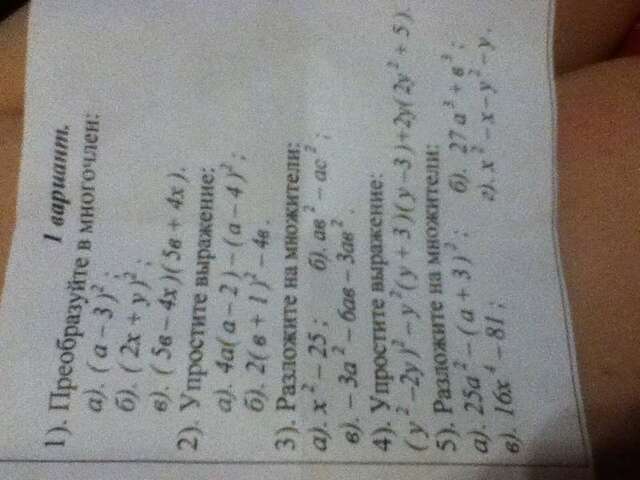 1 вариант.
1). Преобразуйте в многочлен:
а). ( а – 3 )²;
б). ( 2х + у )²;
в). ( 5в – 4х )( 5в + 4х ).
2). Упростите выражение:
а). 4а( а – 2 ) – ( а – 4 )²;
б). 2( в + 1 )² – 4в.
3). Разложите на множители:
а). х² – 25 ; б). ав² – ас² ;
в). – 3а² – 6ав – 3ав².
4). Упростите выражение:
( у² –2у )² – у²( у + 3 )( у – 3 ) + 2у( 2у² + 5 ).
5). Разложите на множители:
а). 25а² – ( а + 3 )² ; б). 27а³ + в³ ;
в). 16х⁴ – 81 ; г). х² – х – у² – у.